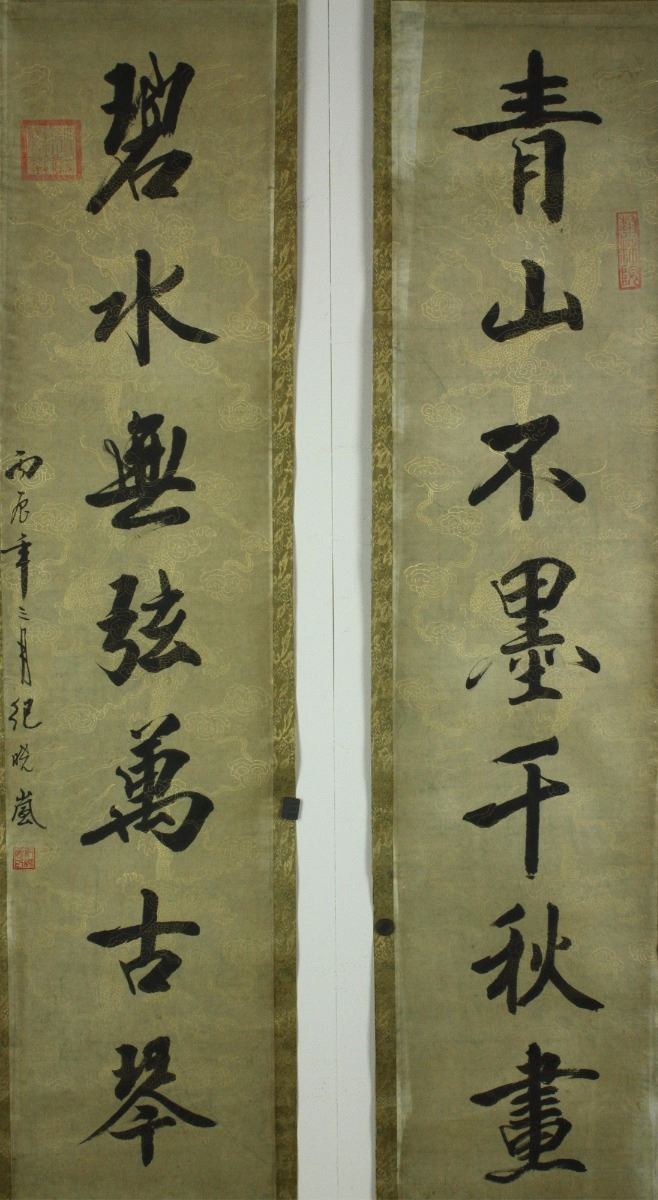 青山不墨千秋畫
碧水無弦萬古琴
丙辰年二月紀曉嵐